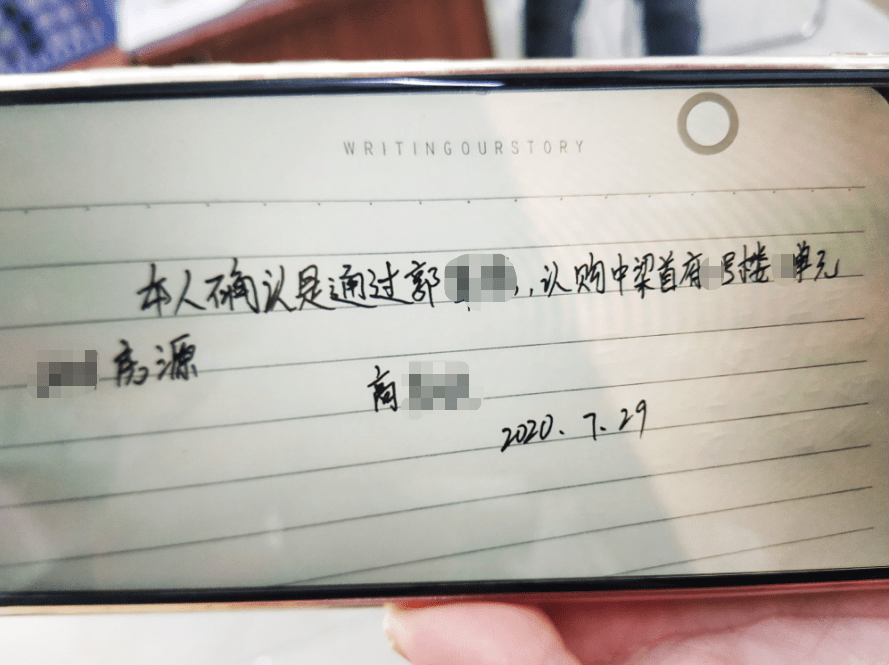 WRITINGOURSTORY
本人确认是通过郭，认购中梁首府号楼单元
房源
高
2020.7.29